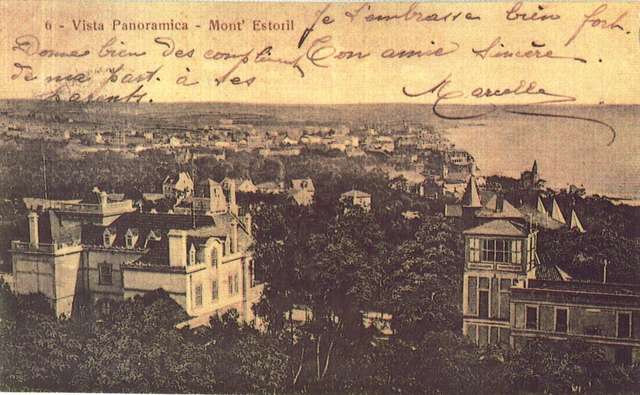 6 - Vista Panoramica - Mont' Estoril
Je t'embrasse bien fort.
Ton amie sincère
Marcelle
Donne bien des compliments
de ma part à tes
parents.